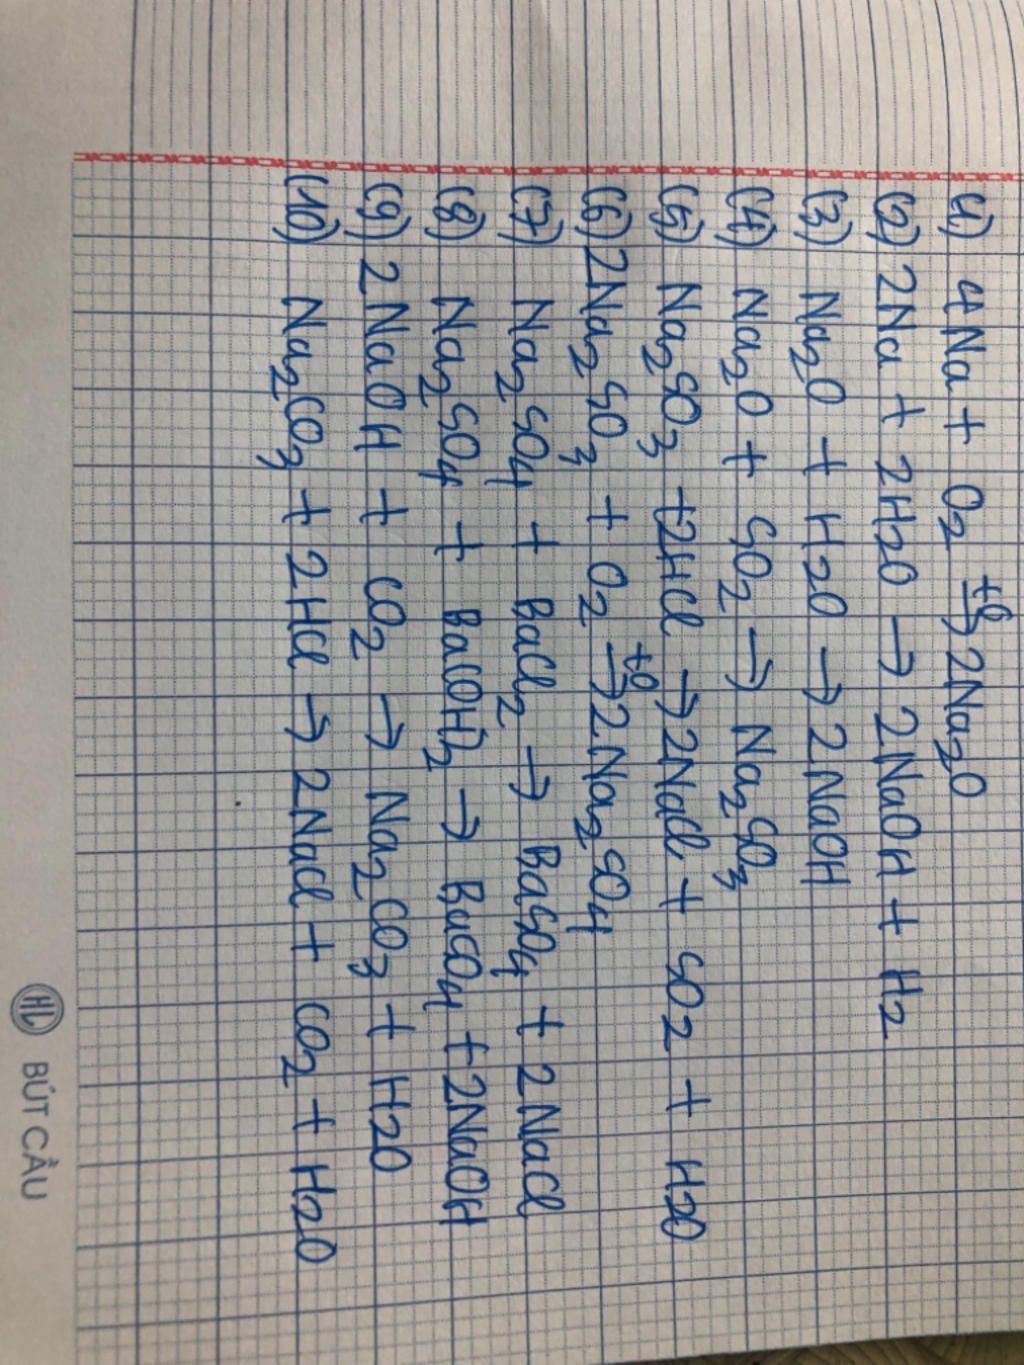 (1) 4Na + O2 t0→ 2Na2O
(2) 2Na + 2H2O → 2NaOH + H2
(3) Na2O + H2O → 2NaOH
(4) Na2O + SO2 → Na2SO3
(5) Na2SO3 +2HCl → 2NaCl + SO2 + H2O
(6) 2Na2SO3 + O2 t0→ 2Na2SO4
(7) Na2SO4 + BaCl2 → BaSO4 + 2NaCl
(8) Na2SO4 + Ba(OH)2 → BaSO4 + 2NaOH
(9) 2NaOH + CO2 → Na2CO3 + H2O
(10) Na2CO3 + 2HCl → 2NaCl + CO2 + H2O
HL BÚT CẦU